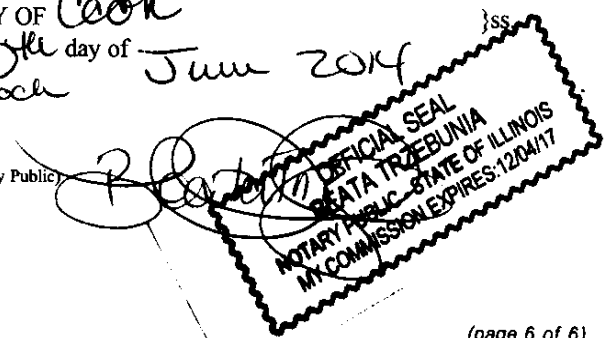 Y OF Cook }ss
day of June 2014
och
y Public)
OFFICIAL SEAL
BEATA TRZEBUNIA
NOTARY PUBLIC - STATE OF ILLINOIS
MY COMMISSION EXPIRES:12/04/17
(page 6 of 6)